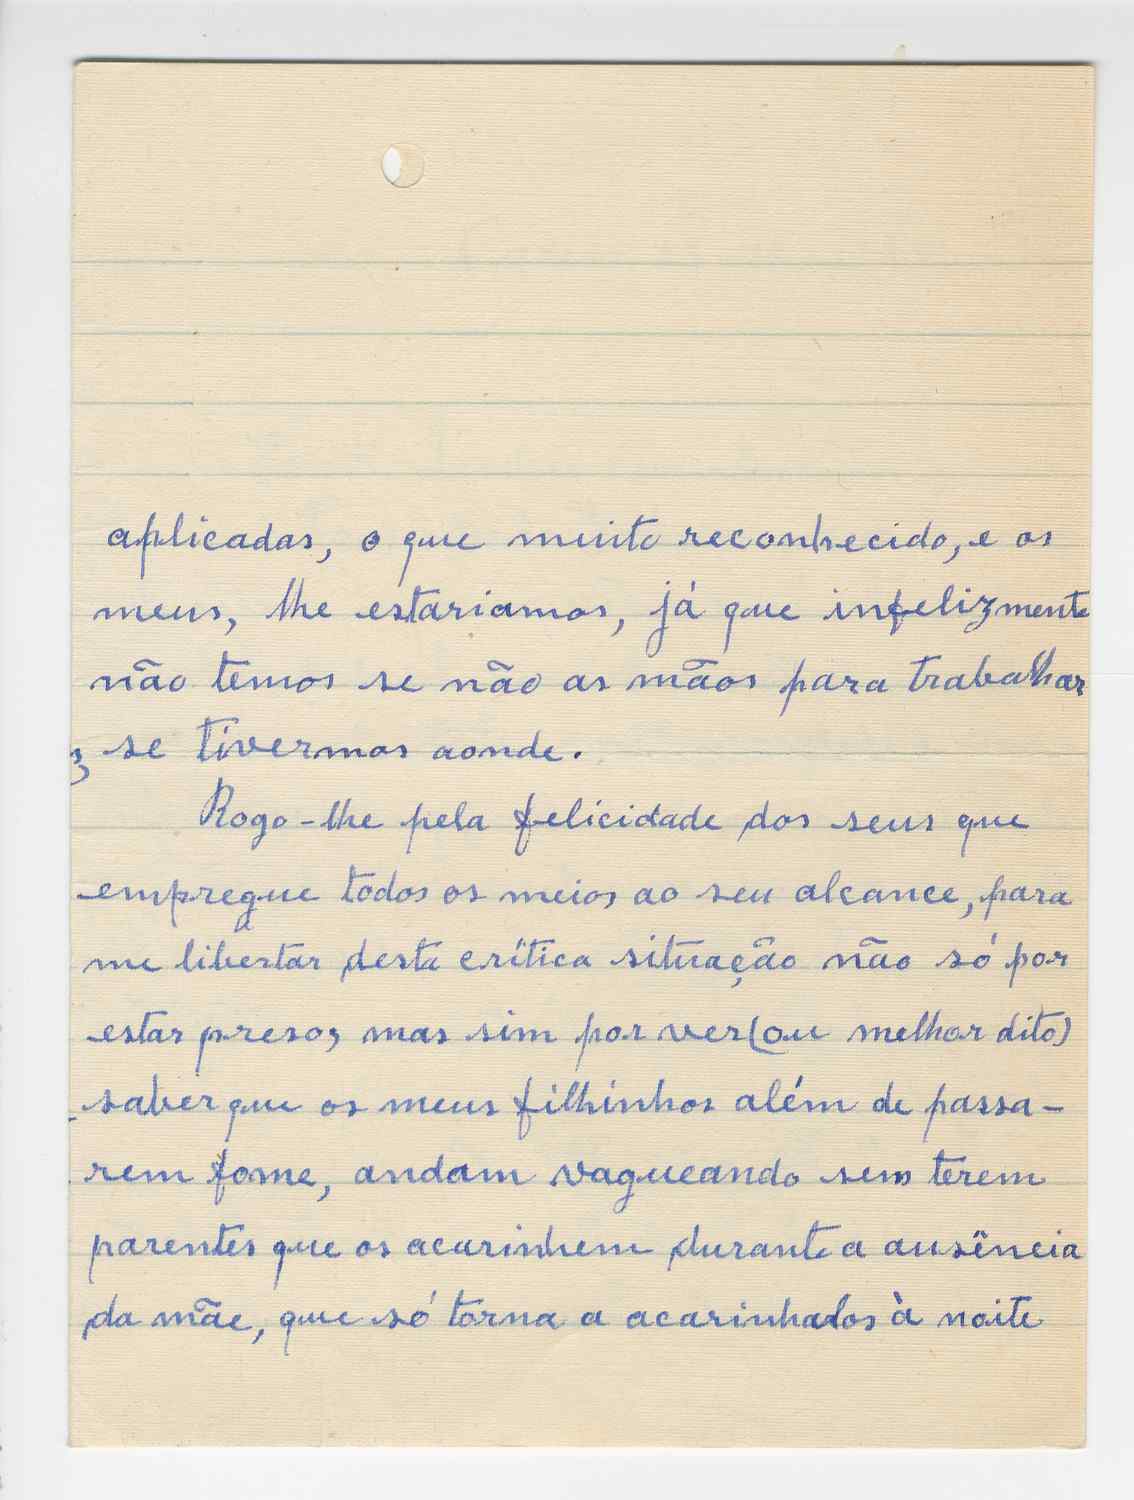 aplicadas, o que muito reconhecido, e os
meus, lhe estariamos, já que infelizmente
não temos se não as mãos para trabalhar
se tivermos aonde.
Rogo-lhe pela felicidade dos seus que
empregue todos os meios ao seu alcance, para
me libertar desta crítica situação não só por
estar preso, mas sim por ver(ou melhor dito)
saber que os meus filhinhos além de passa-
rem fome, andam vagueando sem terem
parentes que os acarinhem durante a ausência
da mãe, que só torna a acarinhalos à noite